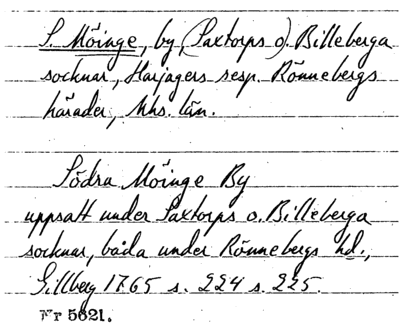 S. Möinge, by, (Saxtorps o). Billeberga
socknar, Harjagers resp. Rönnebergs
härader, Mhs. län.
Södra Möinge By
uppsatt under Saxtorps o. Billeberga
socknar, båda under Rönnebergs hd.,
Gillberg 1765 s. 224 s. 225.
Nr 5621.